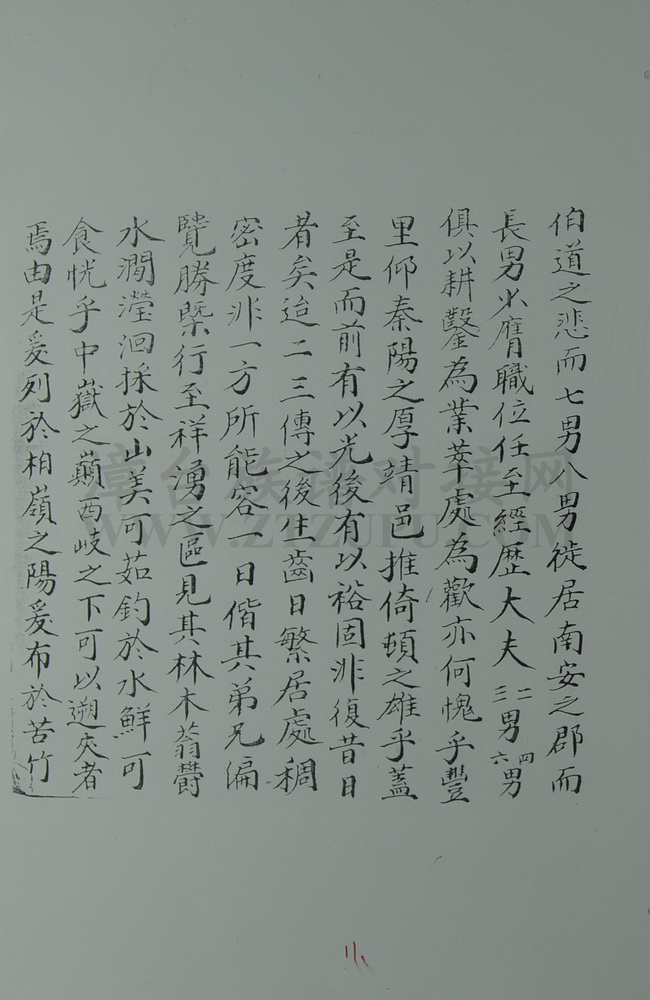 伯道之悲而七男八男徙居南安之郡而
長男少膺職位任至經歷大夫二三男四六男
俱以耕鑿為業萃處為歡亦何愧乎豐
里仰秦陽之厚靖邑推倚頓之雄乎蓋
至是而前有以光後有以裕固非復昔日
者矣迨二三傳之後生齒日繁居處稠
密度非一方所能容一日偕其弟兄徧
覽勝槩行至祥湧之區見其林木蓊欝
水澗瀠洄採於山美可茹釣於水鮮可
食恍乎中嶽之巔西岐之下可以遡夾者
焉由是爰列於柏嶺之陽爰布於苦竹
章台族譜对接网
WWW.ZTZUPU.COM